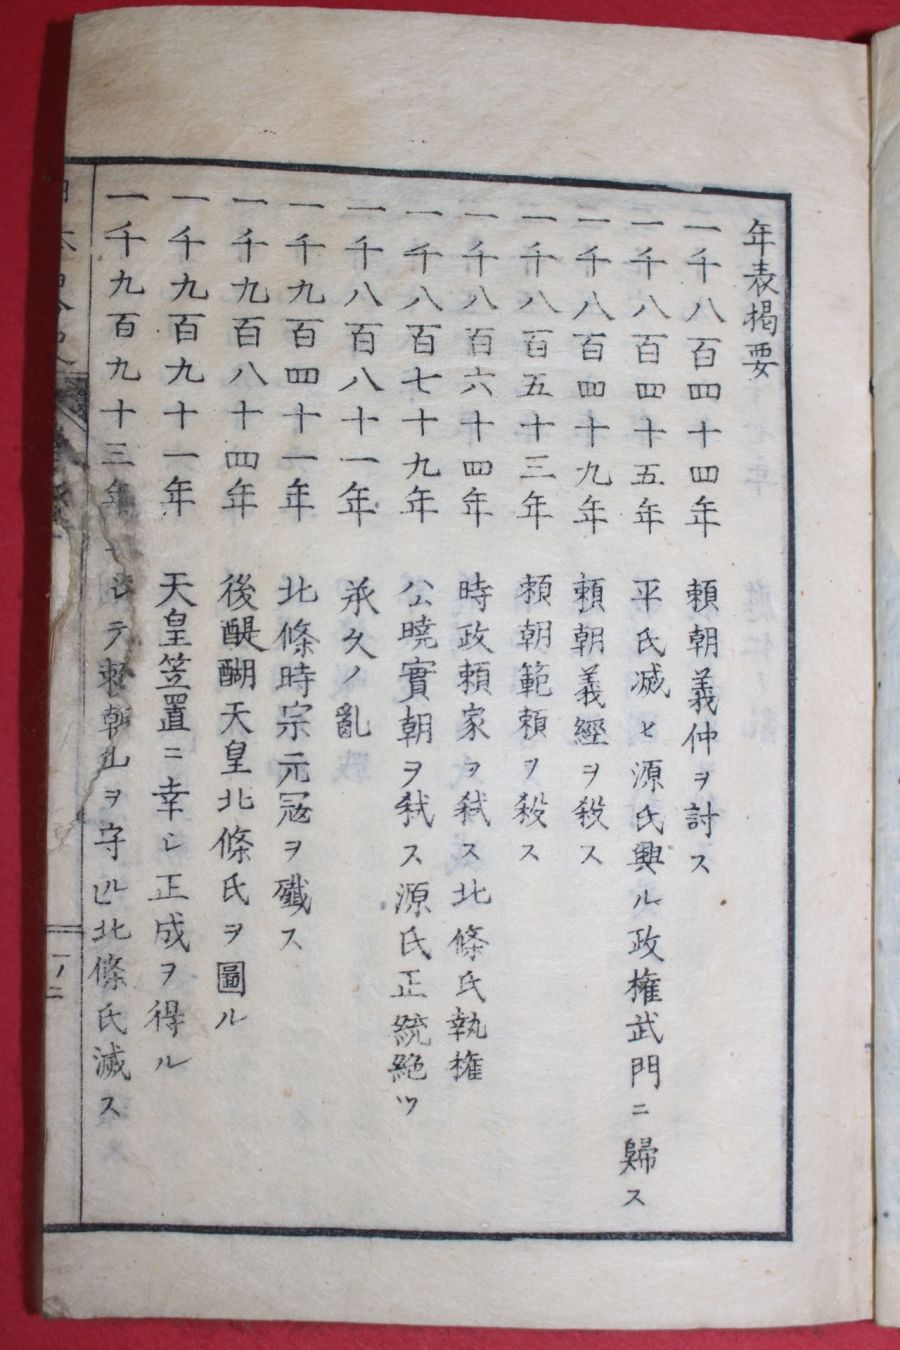 年表掲要
一千八百四十四年 頼朝義仲ヲ討ス
一千八百四十五年 平氏滅ヒ源氏興ル政権武門ニ歸ス
一千八百四十九年 頼朝義經ヲ殺ス
一千八百五十三年 頼朝範頼ヲ殺ス
一千八百六十四年 時政頼家ヲ弑ス北條氏執権
一千八百七十九年 公曉實朝ヲ弑ス源氏正統絶ツ
一千八百八十一年 承久ノ亂
一千九百四十一年 北條時宗元冦ヲ殲ス
一千九百八十四年 後醍醐天皇北條氏ヲ圖ル
一千九百九十一年 天皇笠置ニ幸シ正成ヲ得ル
一千九百九十三年 テ ヲ守 北條氏滅ス